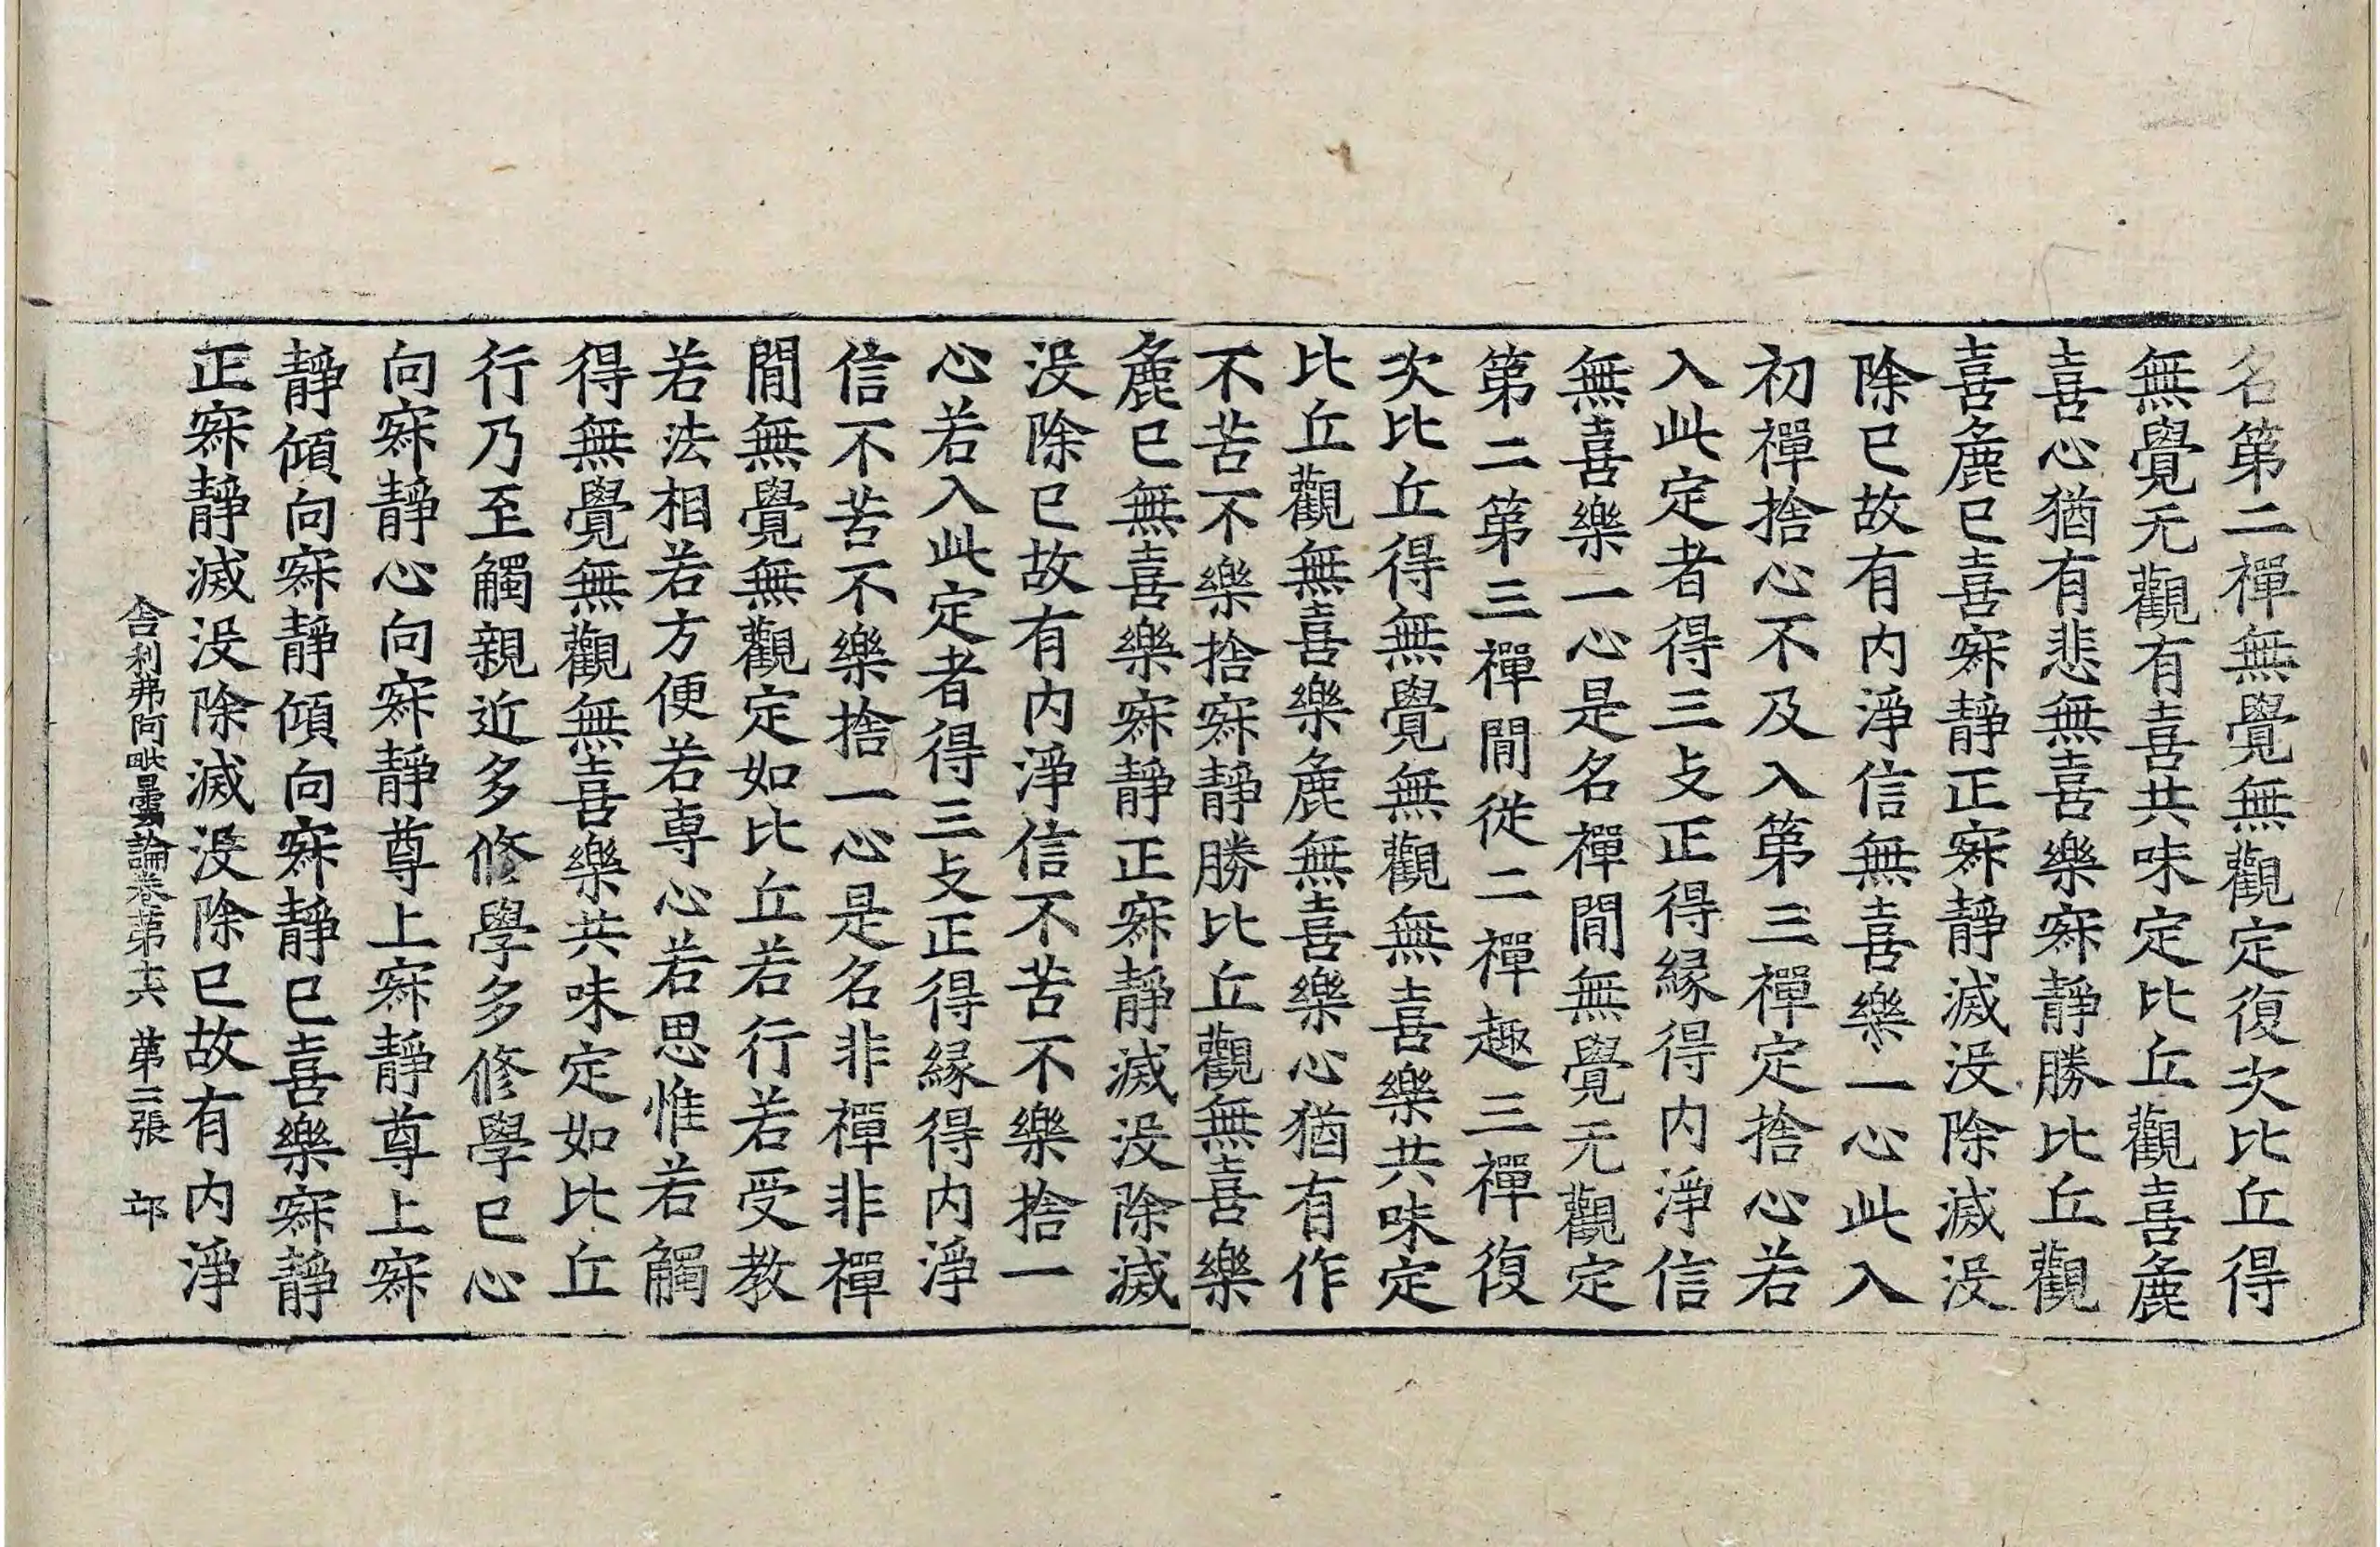 名第二禪無覺無觀定復次比丘得
無覺无觀有喜共味定比丘觀喜麁
喜心猶有悲無喜樂寂靜勝比丘觀
喜麁已喜寂靜正寂靜滅没除滅没
除已故有内淨信無喜樂一心此入
初禪捨心不及入第三禪定捨心若
入此定者得三支正得緣得内淨信
無喜樂一心是名禪閒無覺无觀定
第二第三禪閒從二禪趣三禪復
次比丘得無覺無觀無喜樂共味定
比丘觀無喜樂麁無喜樂心猶有作
不苦不樂捨寂靜勝比丘觀無喜樂
麁已無喜樂寂靜正寂靜滅没除滅
没除已故有内淨信不苦不樂捨一
心若入此定者得三支正得緣得内淨
信不苦不樂捨一心是名非禪非禪
閒無覺無觀定如比丘若行若受教
若法相若方便若専心若思惟若觸
得無覺無觀無喜樂共味定如比丘
行乃至觸親近多修學多修學已心
向寂靜心向寂靜尊上寂靜尊上寂
靜傾向寂靜傾向寂靜已喜樂寂靜
正寂靜滅没除滅没除已故有内淨
舎利弗阿毗曇論卷第十六 第二張